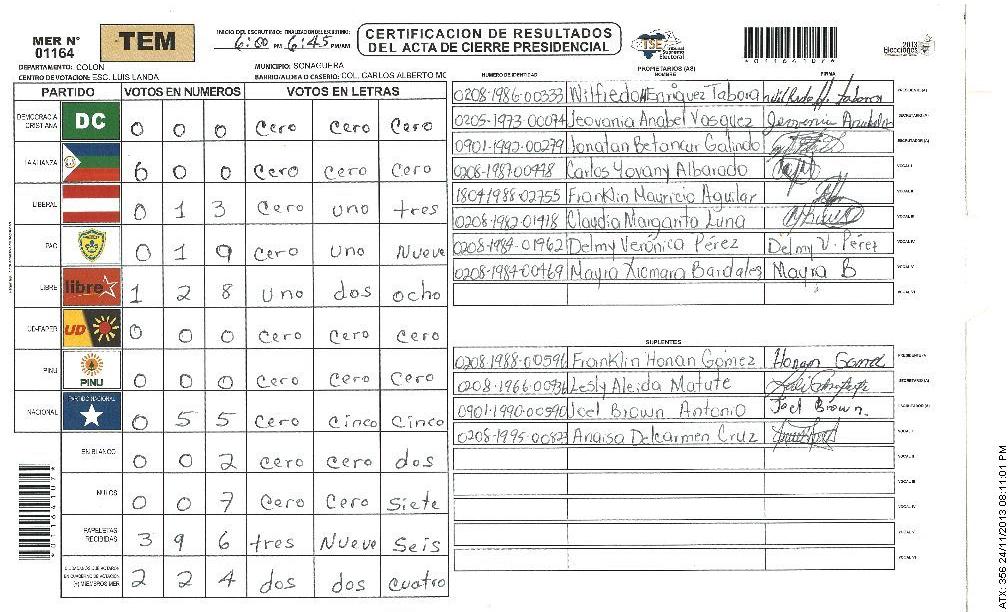 MER N° 01164
TEM
INICIO DEL ESCRUTINIO: FINALIZACION DEL ESCRUTINIO:
6:00 PM 6:45 PM/AM
CERTIFICACION DE RESULTADOS
DEL ACTA DE CIERRE PRESIDENCIAL
TSE Tribunal Supremo Electoral
Elecciones 2013
DEPARTAMENTO: COLON
MUNICIPIO: SONAGUERA
CENTRO DE VOTACION: ESC. LUIS LANDA
BARRIO/ALDEA O CASERIO: COL. CARLOS ALBERTO MO
PARTIDO VOTOS EN NUMEROS VOTOS EN LETRAS
DEMOCRACIA CRISTIANA DC 0 0 0 Cero Cero Cero
LA ALIANZA 6 0 0 Cero Cero Cero
LIBERAL 0 1 3 Cero uno tres
PAC 0 1 9 Cero Uno Nueve
LIBRE libre 1 2 8 uno dos ocho
UD-FAPER UD 0 0 0 Cero Cero Cero
PINU PINU 0 0 0 Cero Cero Cero
NACIONAL PARTIDO NACIONAL 0 5 5 Cero Cinco Cinco
EN BLANCO 0 0 2 Cero Cero dos
NULOS 0 0 7 Cero Cero Siete
PAPELETAS RECIBIDAS 3 9 6 tres Nueve Seis
CIUDADANOS QUE VOTARON EN CUADERNO DE VOTACION (+) MIEMBROS MER 2 2 4 dos dos cuatro
PROPIETARIOS (AS)
NUMERO DE IDENTIDAD NOMBRE FIRMA
0208-1986-00333 Wilfredo Enriquez Tabora PRESIDENTE(A)
0205-1973-00074 Jeovania Anabel Vasquez SECRETARIO(A)
0901-1992-00279 Jonatan Betancur Galindo ESCRUTADOR(A)
0208-1987-00448 Carlos Yovany Albarado VOCAL I
1804-1988-02755 Franklin Mauricio Aguilar VOCAL II
0208-1982-01418 Claudia Margarita Luna VOCAL III
0208-1984-01962 Delmy Verónica Pérez Delmy V. Pérez VOCAL IV
0208-1984-00469 Mayra Xiomara Bardales Mayra B VOCAL V
VOCAL VI
SUPLENTES
0208-1988-00596 Franklin Honan Gomez Honan Gomez PRESIDENTE(A)
0208-1966-00936 Lesly Aleida Matute SECRETARIO(A)
0901-1990-00590 Joel Brown Antonio Joel Brown. ESCRUTADOR(A)
0208-1995-00823 Anaisa Delcarmen Cruz VOCAL I
VOCAL II
VOCAL III
VOCAL IV
VOCAL V
VOCAL VI
ATX: 356 24/11/2013 08:11:01 PM